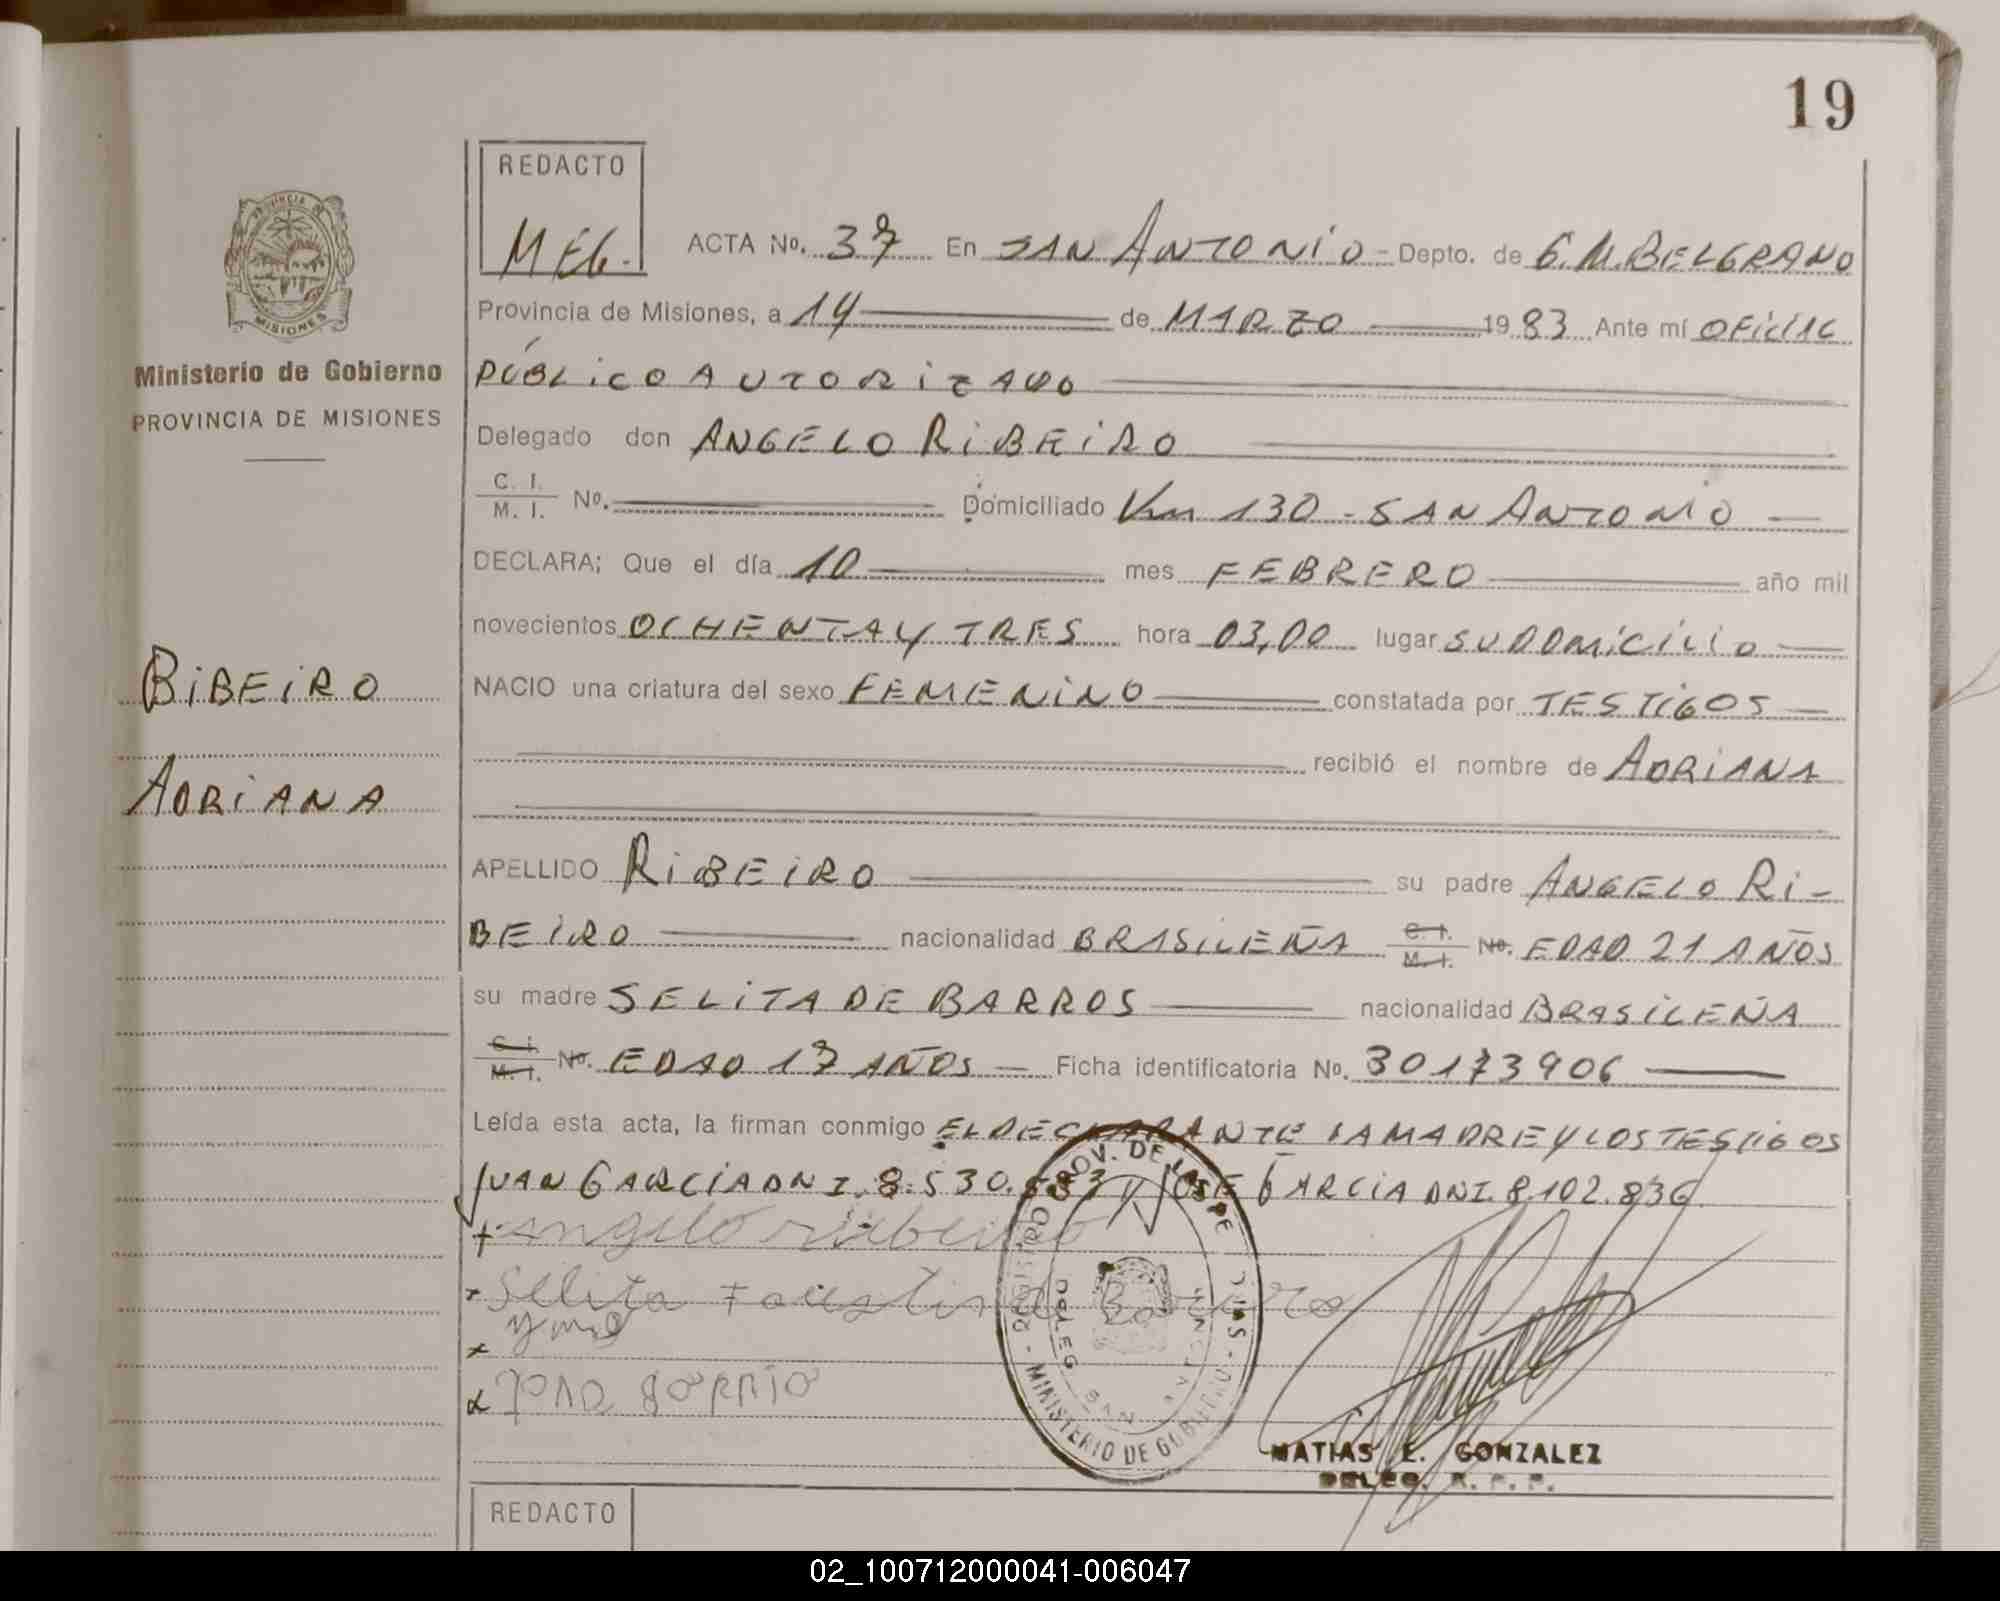 19
REDACTO
MEG.
ACTA No. 37 En SAN ANTONIO - Depto. de G.M.BELGRANO
PROVINCIA DE MISIONES
Provincia de Misiones, a 14 de MARZO 1983 Ante mí OFICIAL
Ministerio de Gobierno
PÚBLICO AUTORIZADO
PROVINCIA DE MISIONES
Delegado don ANGELO RIBEIRO
C. I.
M. I. No. Domiciliado Km 130 - SAN ANTONIO
DECLARA; Que el día 10 mes FEBRERO año mil
novecientos OCHENTA Y TRES hora 03,00 lugar SU DOMICILIO
RIBEIRO
NACIO una criatura del sexo FEMENINO constatada por TESTIGOS
recibió el nombre de ADRIANA
ADRIANA
APELLIDO RIBEIRO su padre ANGELO RI-
BEIRO nacionalidad BRASILEÑA C. I. M. I. No. EDAD 21 AÑOS
su madre SELITA DE BARROS nacionalidad BRASILEÑA
C. I. M. I. No. EDAD 17 AÑOS Ficha identificatoria No. 30173906
Leída esta acta, la firman conmigo EL DECLARANTE LA MADRE Y LOS TESTIGOS
JUAN GARCIA DNI. 8.530.583 Y JOSE GARCIA DNI. 8.102.836
Angelo ribeiro
Selita Faustina Barro
REGISTRO PROV. DE LAS PERSONAS - MINISTERIO DE GOBIERNO
DELEG. SAN
MATIAS E. GONZALEZ
DELEG. R. P. P.
REDACTO
02_100712000041-006047